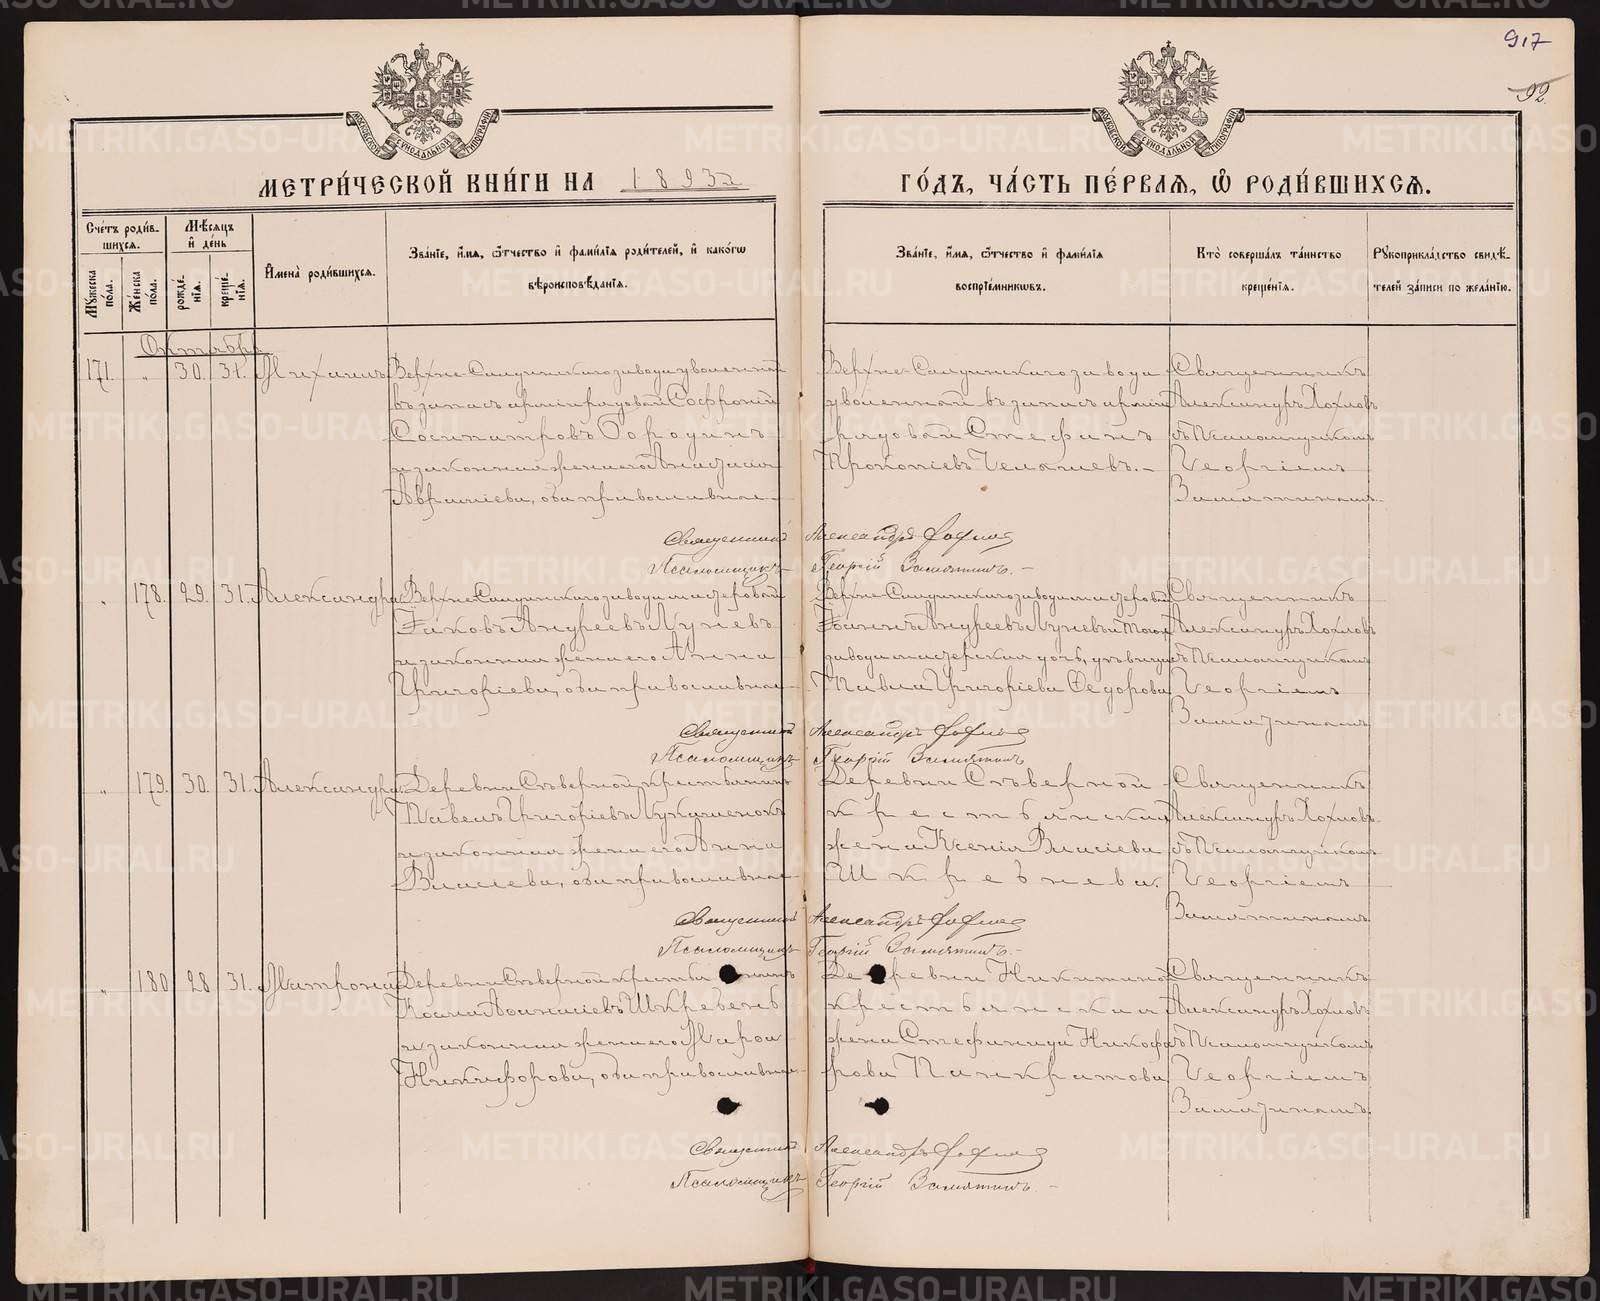 917
92.
МОСКОВСКОЙ СѴНОДАЛЬНОЙ ТИПОГРАФІИ
МОСКОВСКОЙ СѴНОДАЛЬНОЙ ТИПОГРАФІИ
МЕТРИ́ЧЕСКОЙ КНИ́ГИ НА 1893й
ГО́ДЪ, ЧА́СТЬ ПЕ́РВАЯ, Ѽ РОДИ́ВШИХСЯ.
Сче́тъ роди́в-
шихся.
Мѣ́сяцъ
и҆ де́нь
Му́жеска
пола.
Же́нска
пола.
рожде́-
нїя.
креще́-
нїя.
И҆мена̀ роди́вшихся.
Зва́нїе, и҆́мя, ѻ҆́тчество и҆ фами́лїя роди́телей, и҆ како́гѡ
вѣроисповѣ́данїя.
Зва́нїе, и҆́мя, ѻ҆́тчество и҆ фами́лїя
воспрїе́мникѡвъ.
Кто̀ соверша́лъ та́инство
креще́нїя.
Рꙋкоприкла́дство свидѣ́-
телей за́писи по жела́нїю.
Октябрь
171. " 30. 31. Михаилъ
Верхне-Салдинскаго завода уволенный
въ запасъ арміи рядовой Софроній
Сосипатровъ Бородинъ
и законная жена его Анастасія
Авраміева, оба православные
Верхне-Салдинскаго завода
уволенный въ запасъ арміи
рядовой Стефанъ
Прокопіевъ Челышевъ.
Священникъ
Александръ Хохловъ
съ Псаломщикомъ
Георгіемъ
Замятинымъ.
Священникъ Александръ Хохловъ
Псаломщикъ Георгій Замятинъ.
" 178. 29. 31. Александра
Верхне-Салдинскаго завода мастеровой
Іаковъ Андреевъ Луневъ
и законная жена его Анна
Григоріева, оба православные
Верхне-Салдинскаго завода мастеровой
Іоаннъ Андреевъ Луневъ и того
завода мастерская дочь, девица
Павла Григоріева Ѳедорова
Священникъ
Александръ Хохловъ
съ Псаломщикомъ
Георгіемъ
Замятинымъ
Священникъ Александръ Хохловъ
Псаломщикъ Георгій Замятинъ
" 179. 30. 31. Александра
Деревни Сѣверной крестьянинъ
Павелъ Григоріевъ Лукашенокъ
и законная жена его Анна
Власіева, оба православные
Деревни Сѣверной
крестьянская
жена Ксенія Власіева
Шкребнева.
Священникъ
Александръ Хохловъ
съ Псаломщикомъ
Георгіемъ
Замятинымъ
Священникъ Александръ Хохловъ
Псаломщикъ Георгій Замятинъ.
" 180 28 31. Матрона
Деревни Сѣверной крестьянинъ
Косма Аѳанасіевъ Шкребень
и законная жена его Мароа
Никифорова, оба православные
Деревни Никитиной
крестьянская
жена Стефанида Никифо
рова Панкратова
Священникъ
Александръ Хохловъ
съ Псаломщикомъ
Георгіемъ
Замятинымъ.
Священникъ Александръ Хохловъ
Псаломщикъ Георгій Замятинъ
METRIKI.GASO-URAL.RU